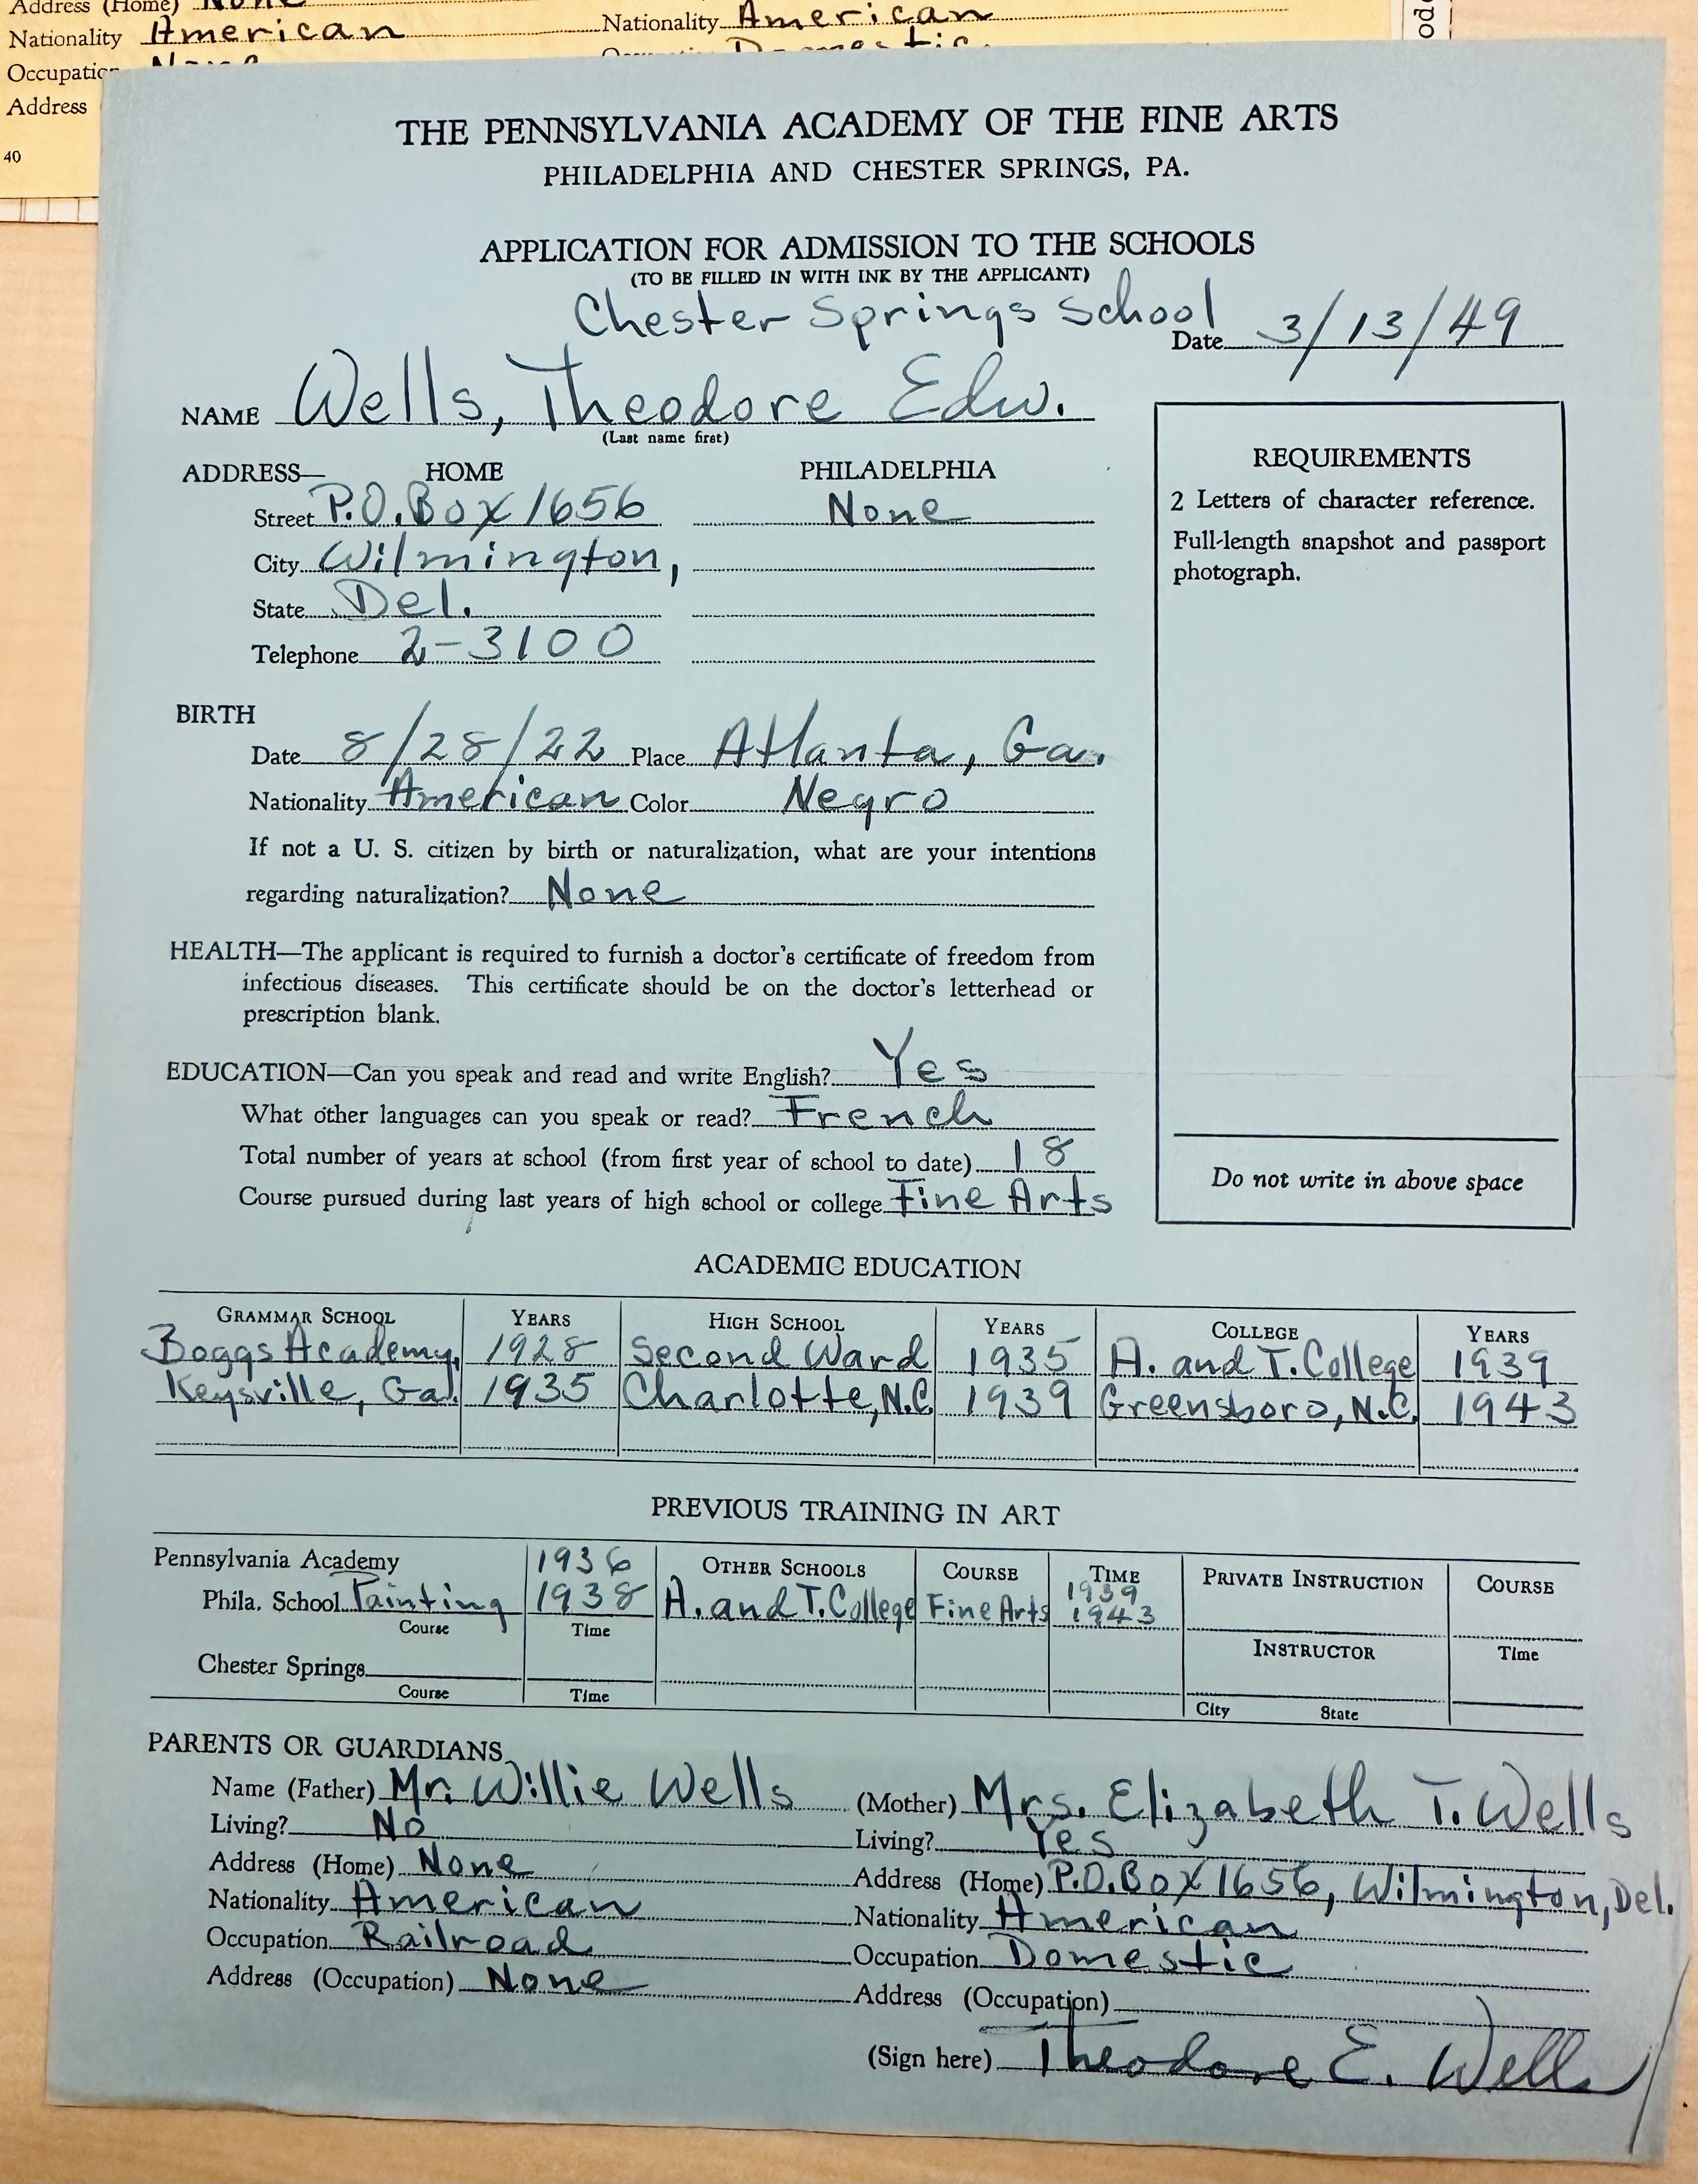 Address (Home) None
Nationality American
Nationality American
Occupation None
Domestic
Address
40
THE PENNSYLVANIA ACADEMY OF THE FINE ARTS
PHILADELPHIA AND CHESTER SPRINGS, PA.
APPLICATION FOR ADMISSION TO THE SCHOOLS
(TO BE FILLED IN WITH INK BY THE APPLICANT)
Chester Springs School
Date 3/13/49
NAME Wells, Theodore Edw.
(Last name first)
ADDRESS— HOME PHILADELPHIA
Street P.O.Box 1656 None
City Wilmington,
State Del.
Telephone 2-3100
REQUIREMENTS
2 Letters of character reference.
Full-length snapshot and passport
photograph.
Do not write in above space
BIRTH
Date 8/28/22 Place Atlanta, Ga.
Nationality American Color Negro
If not a U. S. citizen by birth or naturalization, what are your intentions
regarding naturalization? None
HEALTH—The applicant is required to furnish a doctor's certificate of freedom from
infectious diseases. This certificate should be on the doctor's letterhead or
prescription blank.
EDUCATION—Can you speak and read and write English? Yes
What other languages can you speak or read? French
Total number of years at school (from first year of school to date) 18
Course pursued during last years of high school or college Fine Arts
ACADEMIC EDUCATION
GRAMMAR SCHOOL YEARS HIGH SCHOOL YEARS COLLEGE YEARS
Boggs Academy, 1928 Second Ward 1935 A. and T. College 1939
Keysville, Ga. 1935 Charlotte, N.C. 1939 Greensboro, N.C. 1943
PREVIOUS TRAINING IN ART
Pennsylvania Academy 1936 OTHER SCHOOLS COURSE TIME PRIVATE INSTRUCTION COURSE
1939
Phila. School Painting 1938 A. and T. College Fine Arts 1943
Course Time INSTRUCTOR Time
Chester Springs
Course Time City State
PARENTS OR GUARDIANS
Name (Father) Mr. Willie Wells (Mother) Mrs. Elizabeth T. Wells
Living? No Living? Yes
Address (Home) None Address (Home) P.O.Box 1656, Wilmington, Del.
Nationality American Nationality American
Occupation Railroad Occupation Domestic
Address (Occupation) None Address (Occupation)
(Sign here) Theodore E. Wells